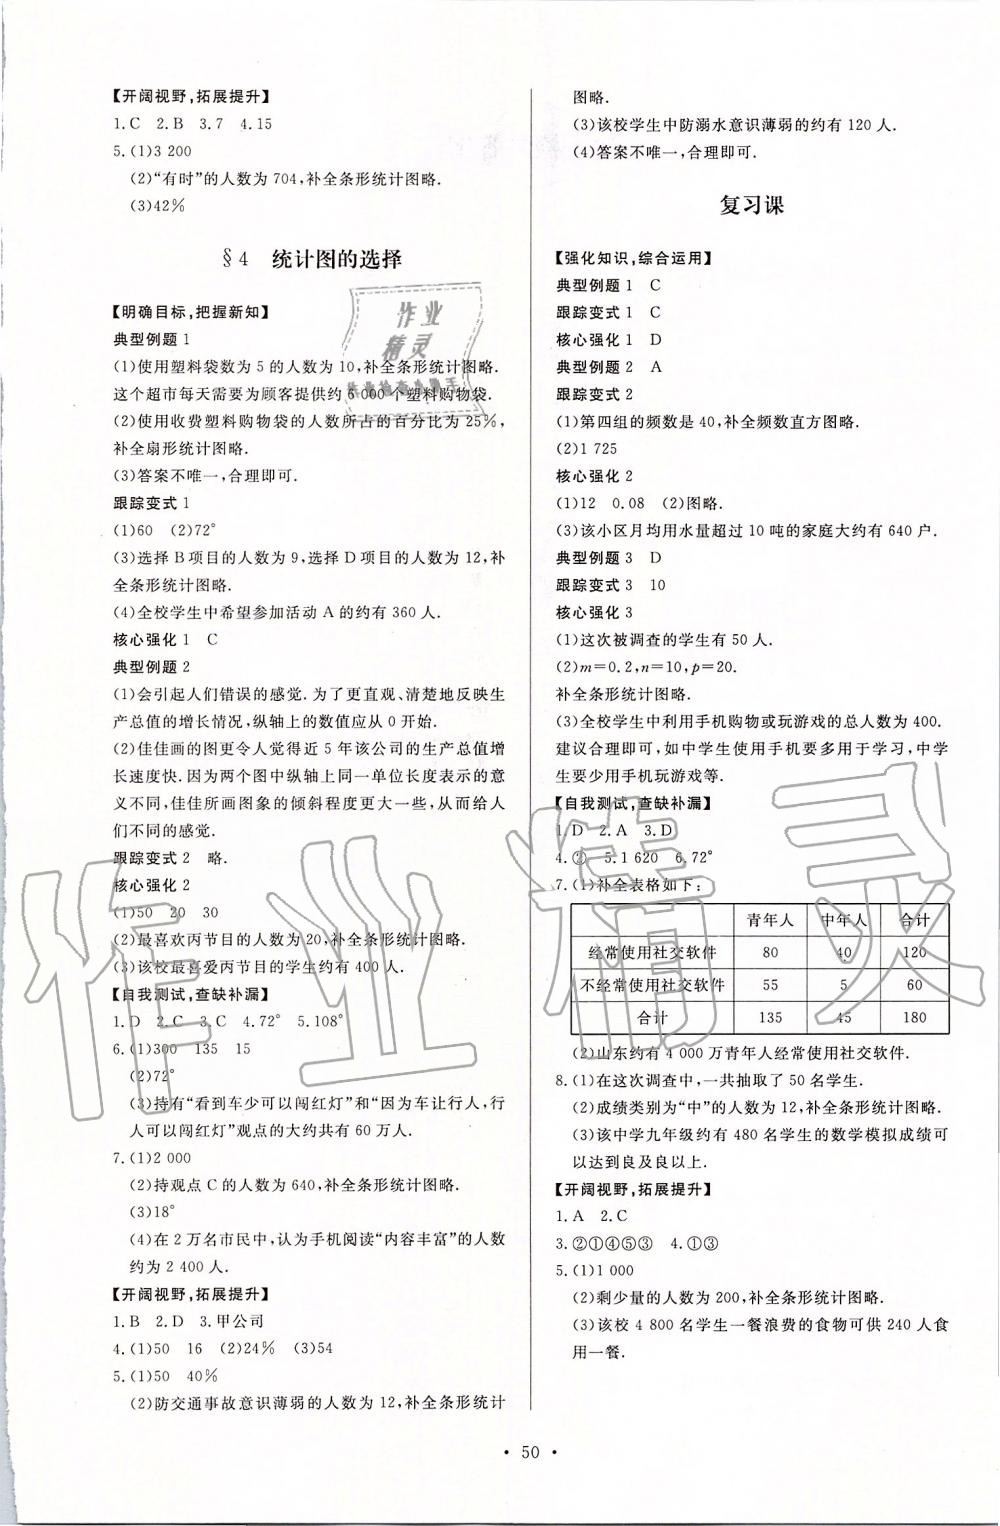 【开阔视野,拓展提升】
1.C 2.B 3.7 4.15
5.(1)3 200
(2)“有时”的人数为 704,补全条形统计图略.
(3)42%
§4 统计图的选择
【明确目标,把握新知】
典型例题 1
(1)使用塑料袋数为 5 的人数为 10,补全条形统计图略.
这个超市每天需要为顾客提供约 6 000 个塑料购物袋.
(2)使用收费塑料购物袋的人数所占的百分比为 25%,
补全扇形统计图略.
(3)答案不唯一,合理即可.
跟踪变式 1
(1)60 (2)72°
(3)选择 B 项目的人数为 9,选择 D 项目的人数为 12,补
全条形统计图略.
(4)全校学生中希望参加活动 A 的约有 360 人.
核心强化 1 C
典型例题 2
(1)会引起人们错误的感觉.为了更直观、清楚地反映生
产总值的增长情况,纵轴上的数值应从 0 开始.
(2)佳佳画的图更令人觉得近 5 年该公司的生产总值
增长速度快.因为两个图中纵轴上同一单位长度表示的意
义不同,佳佳所画图象的倾斜程度更大一些,从而给人
们不同的感觉.
跟踪变式 2 略.
核心强化 2
(1)50 20 30
(2)最喜欢丙节目的人数为 20,补全条形统计图略.
(3)该校最喜爱丙节目的学生约有 400 人.
【自我测试,查缺补漏】
1.D 2.C 3.C 4.72° 5.108°
6.(1)300 135 15
(2)72°
(3)持有“看到车少可以闯红灯”和“因为车让行人,行
人可以闯红灯”观点的大约共有 60 万人.
7.(1)2 000
(2)持观点 C 的人数为 640,补全条形统计图略.
(3)18°
(4)在 2 万名市民中,认为手机阅读“内容丰富”的人数
约为 2 400 人.
【开阔视野,拓展提升】
1.B 2.D 3.甲公司
4.(1)50 16 (2)24% (3)54
5.(1)50 40%
(2)防交通事故意识薄弱的人数为 12,补全条形统计
图略.
(3)该校学生中防溺水意识薄弱的约有 120 人.
(4)答案不唯一,合理即可.
复习课
【强化知识,综合运用】
典型例题 1 C
跟踪变式 1 C
核心强化 1 D
典型例题 2 A
跟踪变式 2
(1)第四组的频数是 40,补全频数直方图略.
(2)1 725
核心强化 2
(1)12 0.08 (2)图略.
(3)该小区月均用水量超过 10 吨的家庭大约有 640 户.
典型例题 3 D
跟踪变式 3 10
核心强化 3
(1)这次被调查的学生有 50 人.
(2)m=0.2,n=10,p=20.
补全条形统计图略.
(3)全校学生中利用手机购物或玩游戏的总人数为 400.
建议合理即可,如中学生使用手机要多用于学习,中学
生要少用手机玩游戏等.
【自我测试,查缺补漏】
1.D 2.A 3.D
4.② 5.1 620 6.72°
7.(1)补全表格如下:
青年人 中年人 合计
经常使用社交软件 80 40 120
不经常使用社交软件 55 5 60
合计 135 45 180
(2)山东约有 4 000 万青年人经常使用社交软件.
8.(1)在这次调查中,一共抽取了 50 名学生.
(2)成绩类别为“中”的人数为 12,补全条形统计图略.
(3)该中学九年级约有 480 名学生的数学模拟成绩可
以达到良及良以上.
【开阔视野,拓展提升】
1.A 2.C
3.②①④⑤③ 4.①③
5.(1)1 000
(2)剩少量的人数为 200,补全条形统计图略.
(3)该校 4 800 名学生一餐浪费的食物可供 240 人食
用一餐.
· 50 ·
作业
精灵
作业精灵